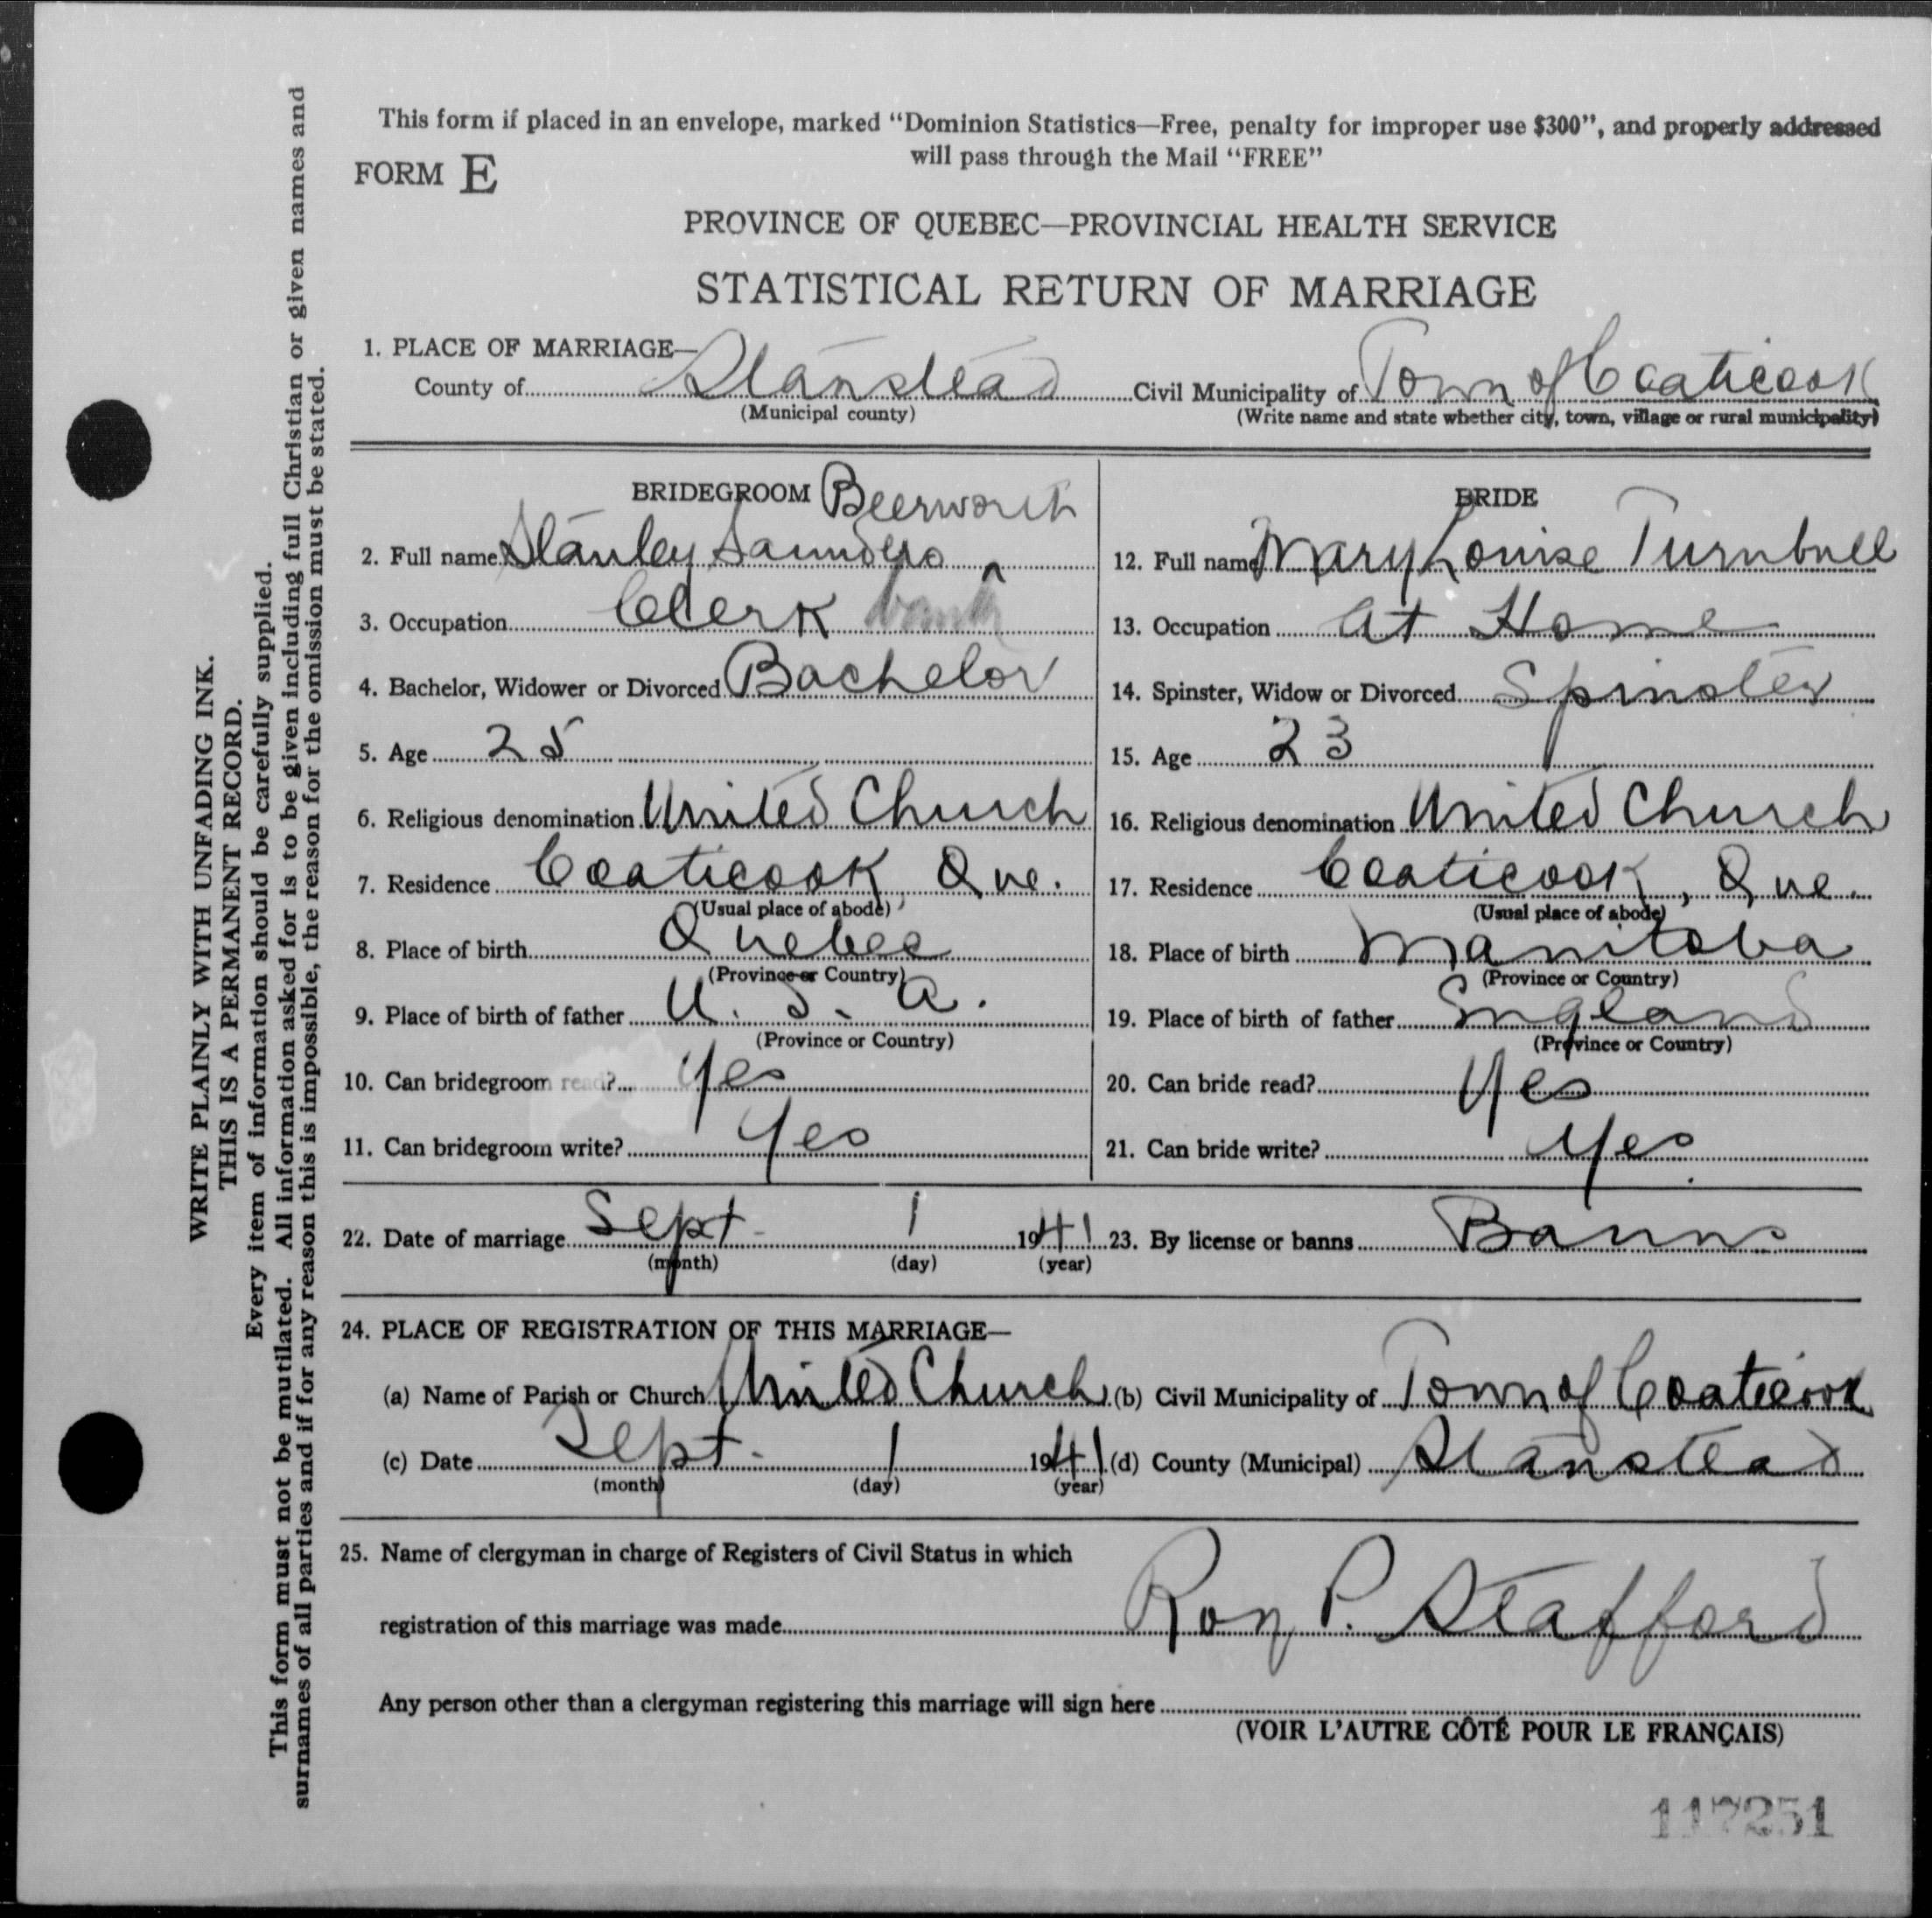 This form if placed in an envelope, marked "Dominion Statistics—Free, penalty for improper use $300", and properly addressed
will pass through the Mail "FREE"
FORM E
PROVINCE OF QUEBEC—PROVINCIAL HEALTH SERVICE
STATISTICAL RETURN OF MARRIAGE
1. PLACE OF MARRIAGE—
County of Stanstead Civil Municipality of Town of Coaticook
(Municipal county) (Write name and state whether city, town, village or rural municipality)
BRIDEGROOM Beerworth
2. Full name Stanley Saunders
3. Occupation Clerk bank
4. Bachelor, Widower or Divorced Bachelor
5. Age 25
6. Religious denomination United Church
7. Residence Coaticook, Que.
(Usual place of abode)
8. Place of birth Quebec
(Province or Country)
9. Place of birth of father U. S. A.
(Province or Country)
10. Can bridegroom read? Yes
11. Can bridegroom write? Yes
BRIDE
12. Full name Mary Louise Turnbull
13. Occupation At Home
14. Spinster, Widow or Divorced Spinster
15. Age 23
16. Religious denomination United Church
17. Residence Coaticook, Que.
(Usual place of abode)
18. Place of birth Manitoba
(Province or Country)
19. Place of birth of father England
(Province or Country)
20. Can bride read? Yes
21. Can bride write? Yes
22. Date of marriage Sept. 1 1941 23. By license or banns Banns
(month) (day) (year)
24. PLACE OF REGISTRATION OF THIS MARRIAGE—
(a) Name of Parish or Church United Church (b) Civil Municipality of Town of Coaticook
(c) Date Sept. 1 1941 (d) County (Municipal) Stanstead
(month) (day) (year)
25. Name of clergyman in charge of Registers of Civil Status in which
registration of this marriage was made Roy P. Stafford
Any person other than a clergyman registering this marriage will sign here
(VOIR L'AUTRE CÔTÉ POUR LE FRANÇAIS)
117251
WRITE PLAINLY WITH UNFADING INK.
THIS IS A PERMANENT RECORD.
Every item of information should be carefully supplied.
This form must not be mutilated. All information asked for is to be given including full Christian or given names and
surnames of all parties and if for any reason this is impossible, the reason for the omission must be stated.